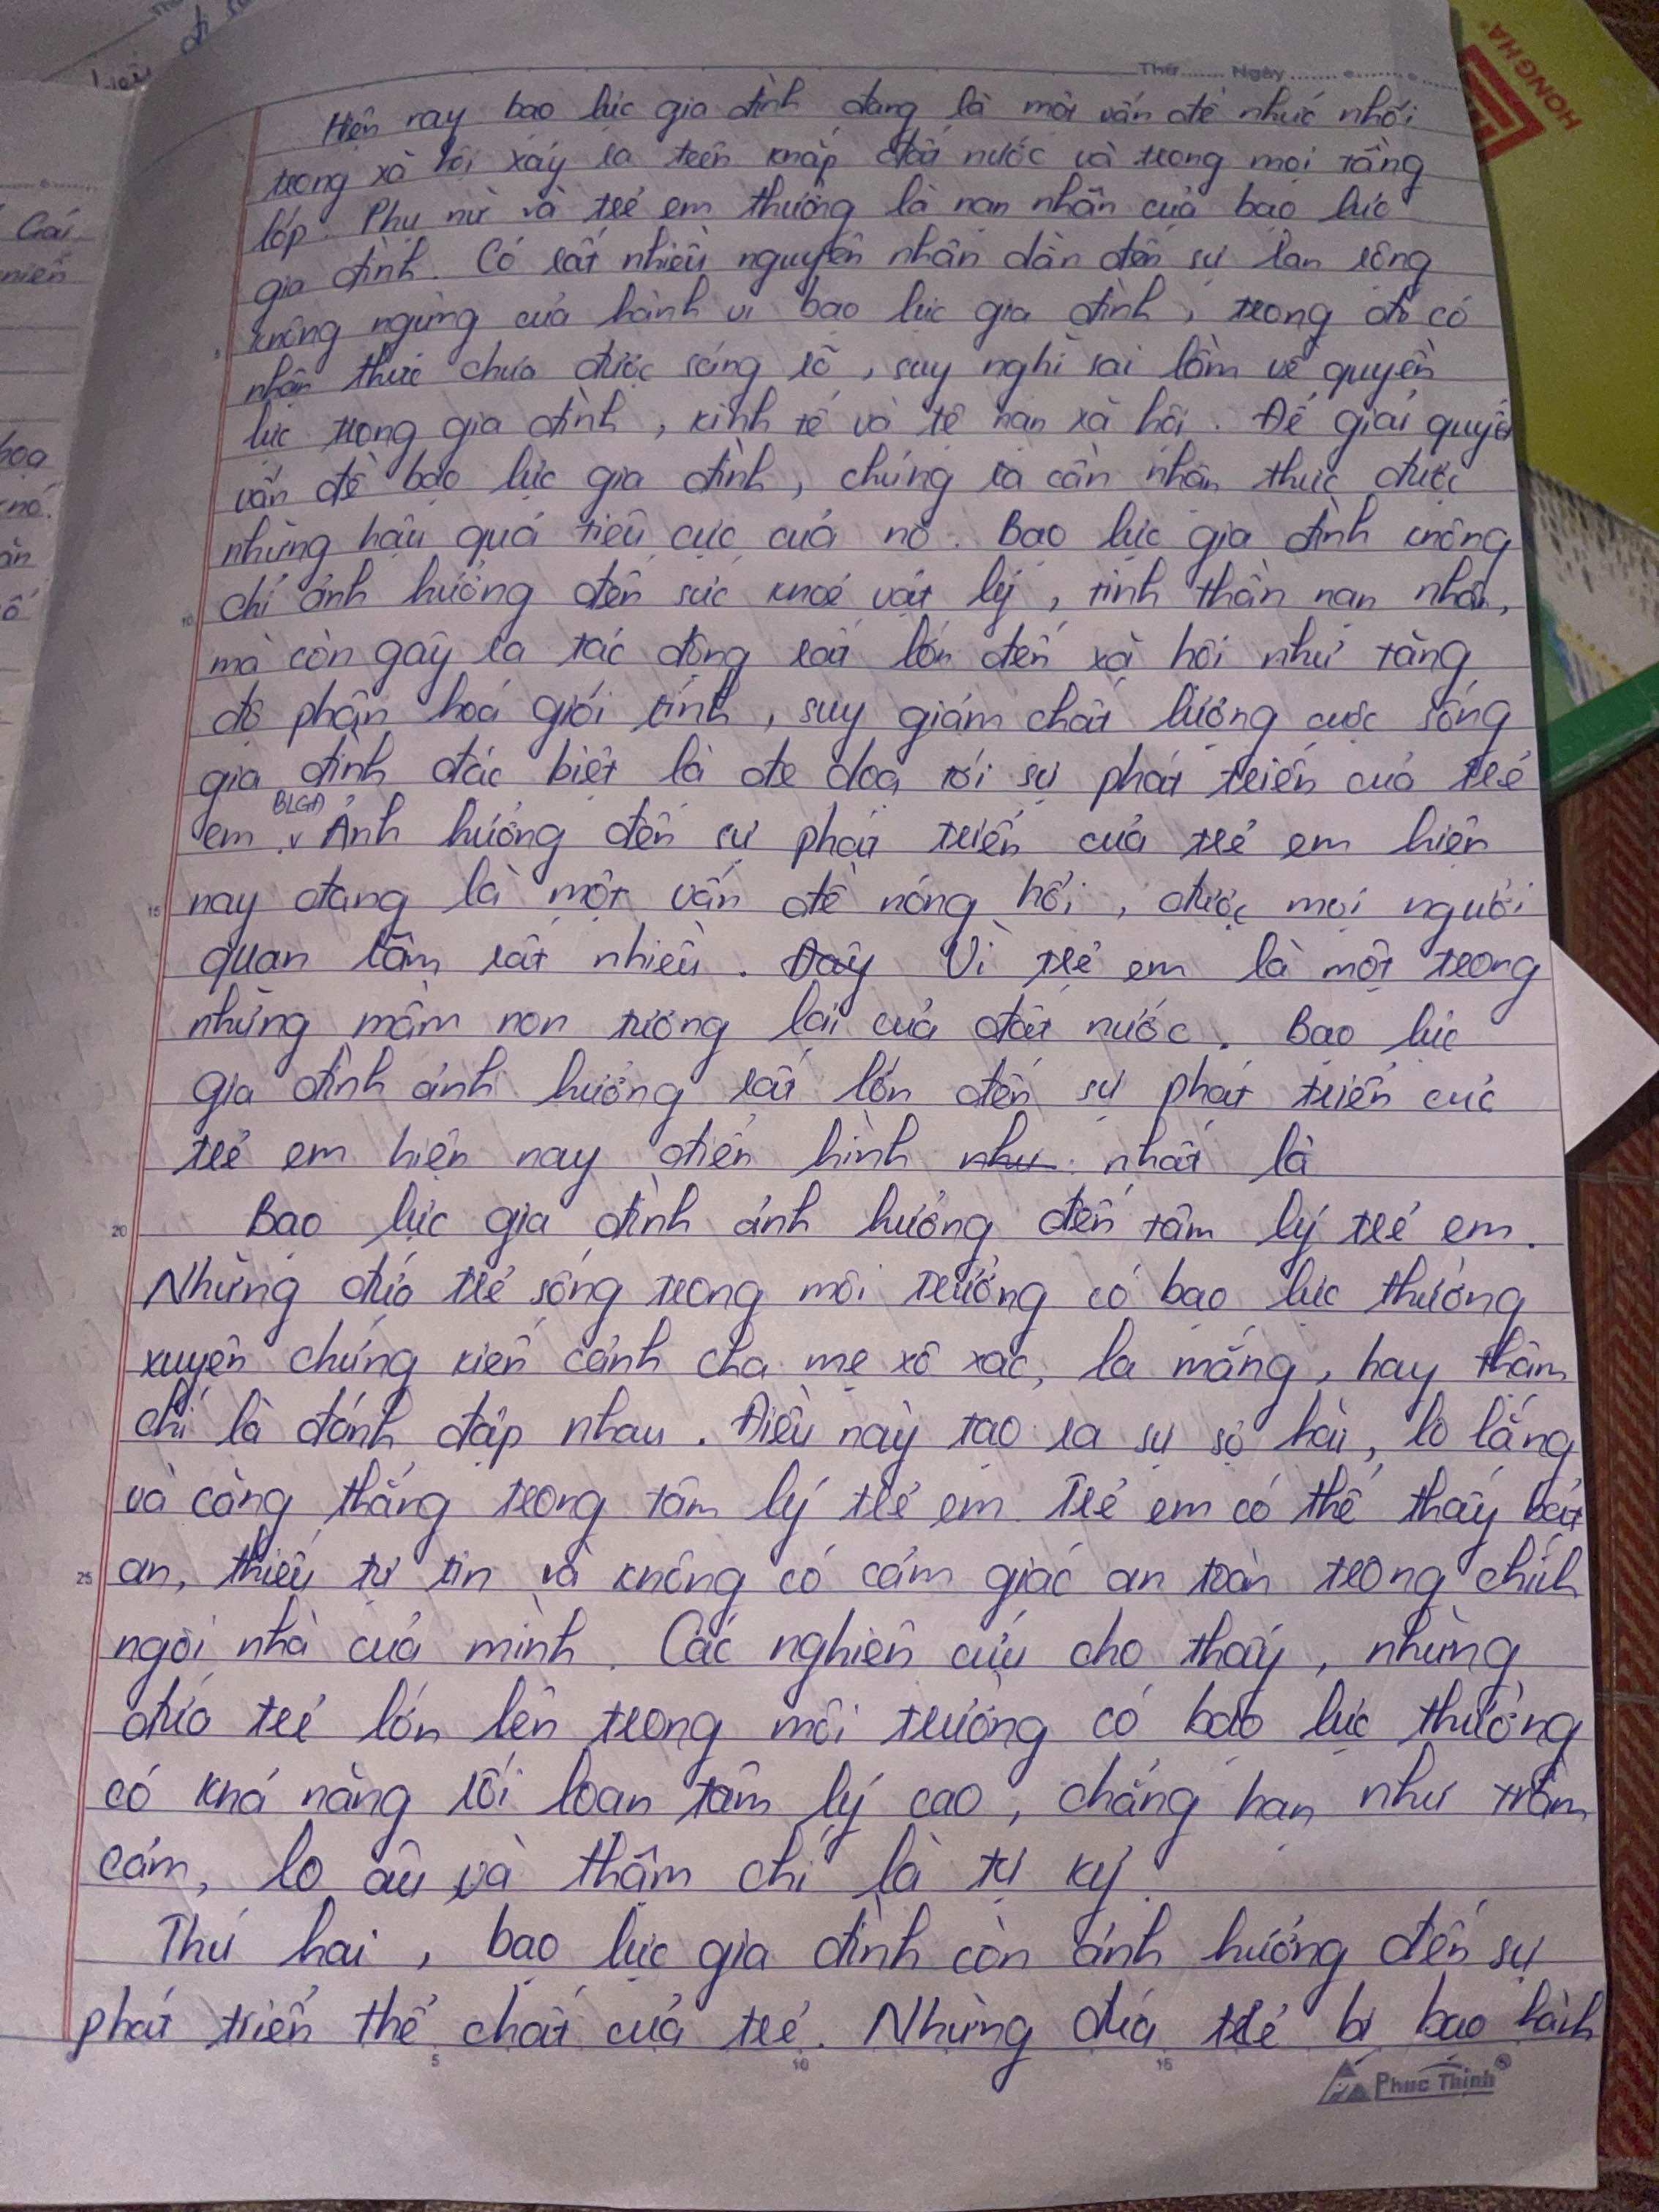 Thứ ........ Ngày ........
HONG HA
Hiện nay bạo lực gia đình đang là một vấn đề nhức nhối
trong xã hội xảy ra trên khắp đất nước và trong mọi tầng
lớp. Phụ nữ và trẻ em thường là nạn nhân của bạo lực
gia đình. Có rất nhiều nguyên nhân dẫn đến sự lan rộng
không ngừng của hành vi bạo lực gia đình, trong đó có
nhận thức chưa được sáng rõ, suy nghĩ sai lầm về quyền
lực trong gia đình, kinh tế và tệ nạn xã hội. Để giải quyết
vấn đề bạo lực gia đình, chúng ta cần nhận thức được
những hậu quả tiêu cực của nó. Bạo lực gia đình không
chỉ ảnh hưởng đến sức khoẻ vật lý, tinh thần nạn nhân,
mà còn gây ra tác động rất lớn đến xã hội như tăng
độ phân hoá giới tính, suy giảm chất lượng cuộc sống
gia đình đặc biệt là đe doạ tới sự phát triển của trẻ
em. BLGĐ Ảnh hưởng đến sự phát triển của trẻ em hiện
nay đang là một vấn đề nóng hổi, được mọi người
quan tâm rất nhiều. Đây Vì trẻ em là một trong
những mầm non tương lai của đất nước. Bạo lực
gia đình ảnh hưởng rất lớn đến sự phát triển của
trẻ em hiện nay điển hình như nhất là
Bạo lực gia đình ảnh hưởng đến tâm lý trẻ em.
Những đứa trẻ sống trong môi trường có bạo lực thường
xuyên chứng kiến cảnh cha mẹ xô xác, la mắng, hay thậm
chí là đánh đập nhau. Điều này tạo ra sự sợ hãi, lo lắng
và căng thẳng trong tâm lý trẻ em. Trẻ em có thể thấy bất
an, thiếu tự tin và không có cảm giác an toàn trong chính
ngôi nhà của mình. Các nghiên cứu cho thấy, những
đứa trẻ lớn lên trong môi trường có bạo lực thường
có khả năng rối loạn tâm lý cao, chẳng hạn như trầm
cảm, lo âu và thậm chí là tự kỷ.
Thứ hai, bạo lực gia đình còn ảnh hưởng đến sự
phát triển thể chất của trẻ. Những đứa trẻ bị bạo hành
5 10 15
Phuc Thinh